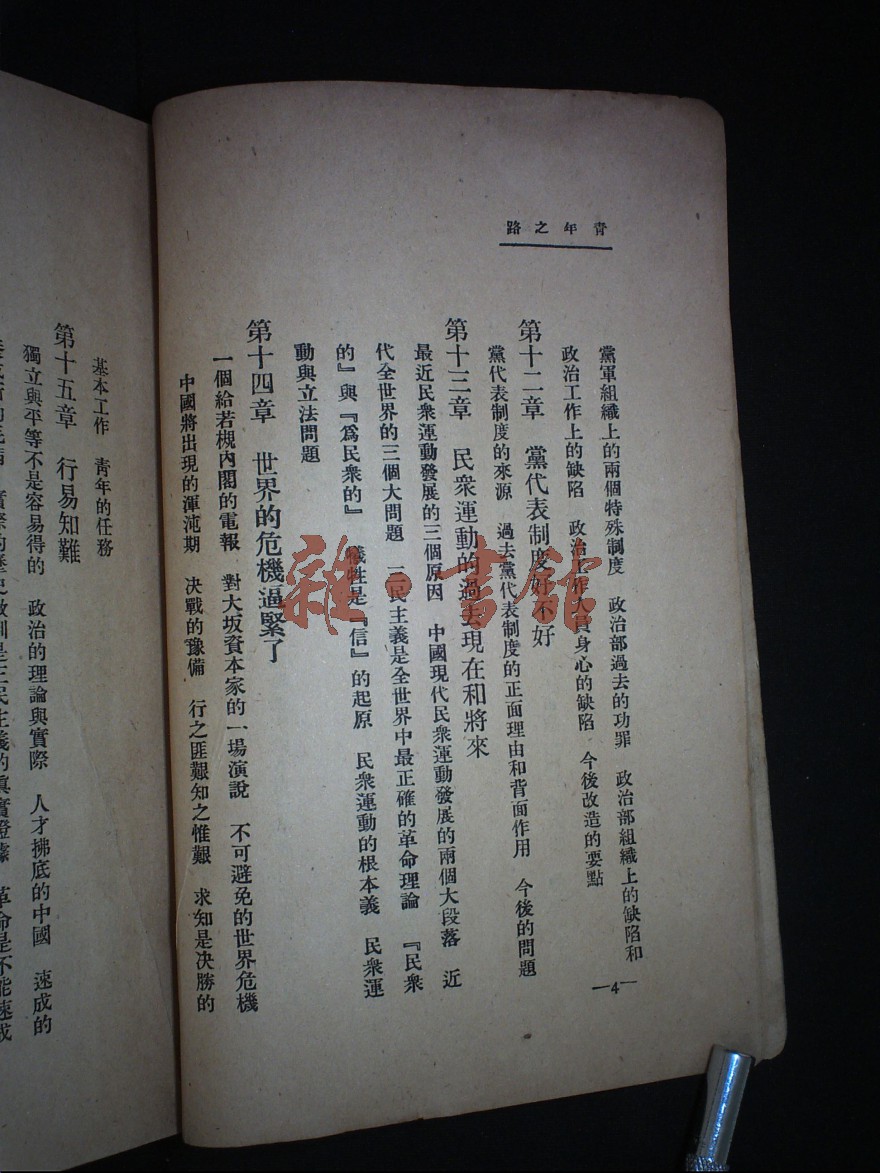 青年之路
黨軍組織上的兩個特殊制度　政治部過去的功罪　政治部組織上的缺陷和
政治工作上的缺陷　政治工作人員身心的缺陷　今後改造的要點
第十二章　黨代表制度好不好
黨代表制度的來源　過去黨代表制度的正面理由和背面作用　今後的問題
第十三章　民衆運動的過去現在和將來
最近民衆運動發展的三個原因　中國現代民衆運動發展的兩個大段落　近
代全世界的三個大問題　三民主義是全世界中最正確的革命理論　『民衆
的』與『爲民衆的』　犧牲是『信』的起原　民衆運動的根本義　民衆運
動與立法問題
第十四章　世界的危機逼緊了
一個給若槻內閣的電報　對大坂資本家的一場演說　不可避免的世界危機
中國將出現的渾沌期　決戰的豫備　行之匪艱知之惟艱　求知是決勝的
—4—
基本工作　青年的任務
第十五章　行易知難
獨立與平等不是容易得的　政治的理論與實際　人才拂底的中國　速成的
實際的歷史敎訓是三民主義的眞實證據　革命是不能速成
雜·書館